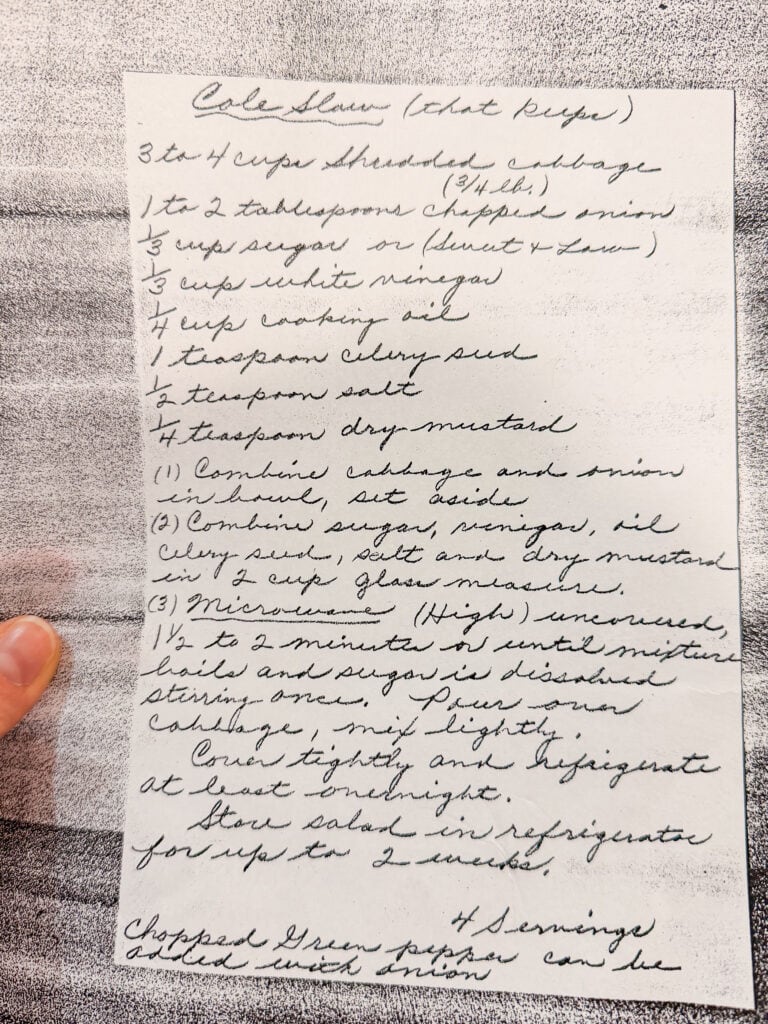 Cole Slaw (that keeps)
3 to 4 cups Shredded cabbage
(3/4 lb.)
1 to 2 tablespoons chopped onion
1/3 cup sugar or (Sweet & Low)
1/3 cup white vinegar
1/4 cup cooking oil
1 teaspoon celery seed
1/2 teaspoon salt
1/4 teaspoon dry mustard
(1) Combine cabbage and onion
in bowl, set aside
(2) Combine sugar, vinegar, oil
celery seed, salt and dry mustard
in 2 cup glass measure.
(3) Microwave (High) uncovered,
1 1/2 to 2 minutes or until mixture
boils and sugar is dissolved
stirring once. Pour over
cabbage, mix lightly.
Cover tightly and refrigerate
at least overnight.
Store salad in refrigerator
for up to 2 weeks.
4 Servings
Chopped Green pepper can be
added with onion